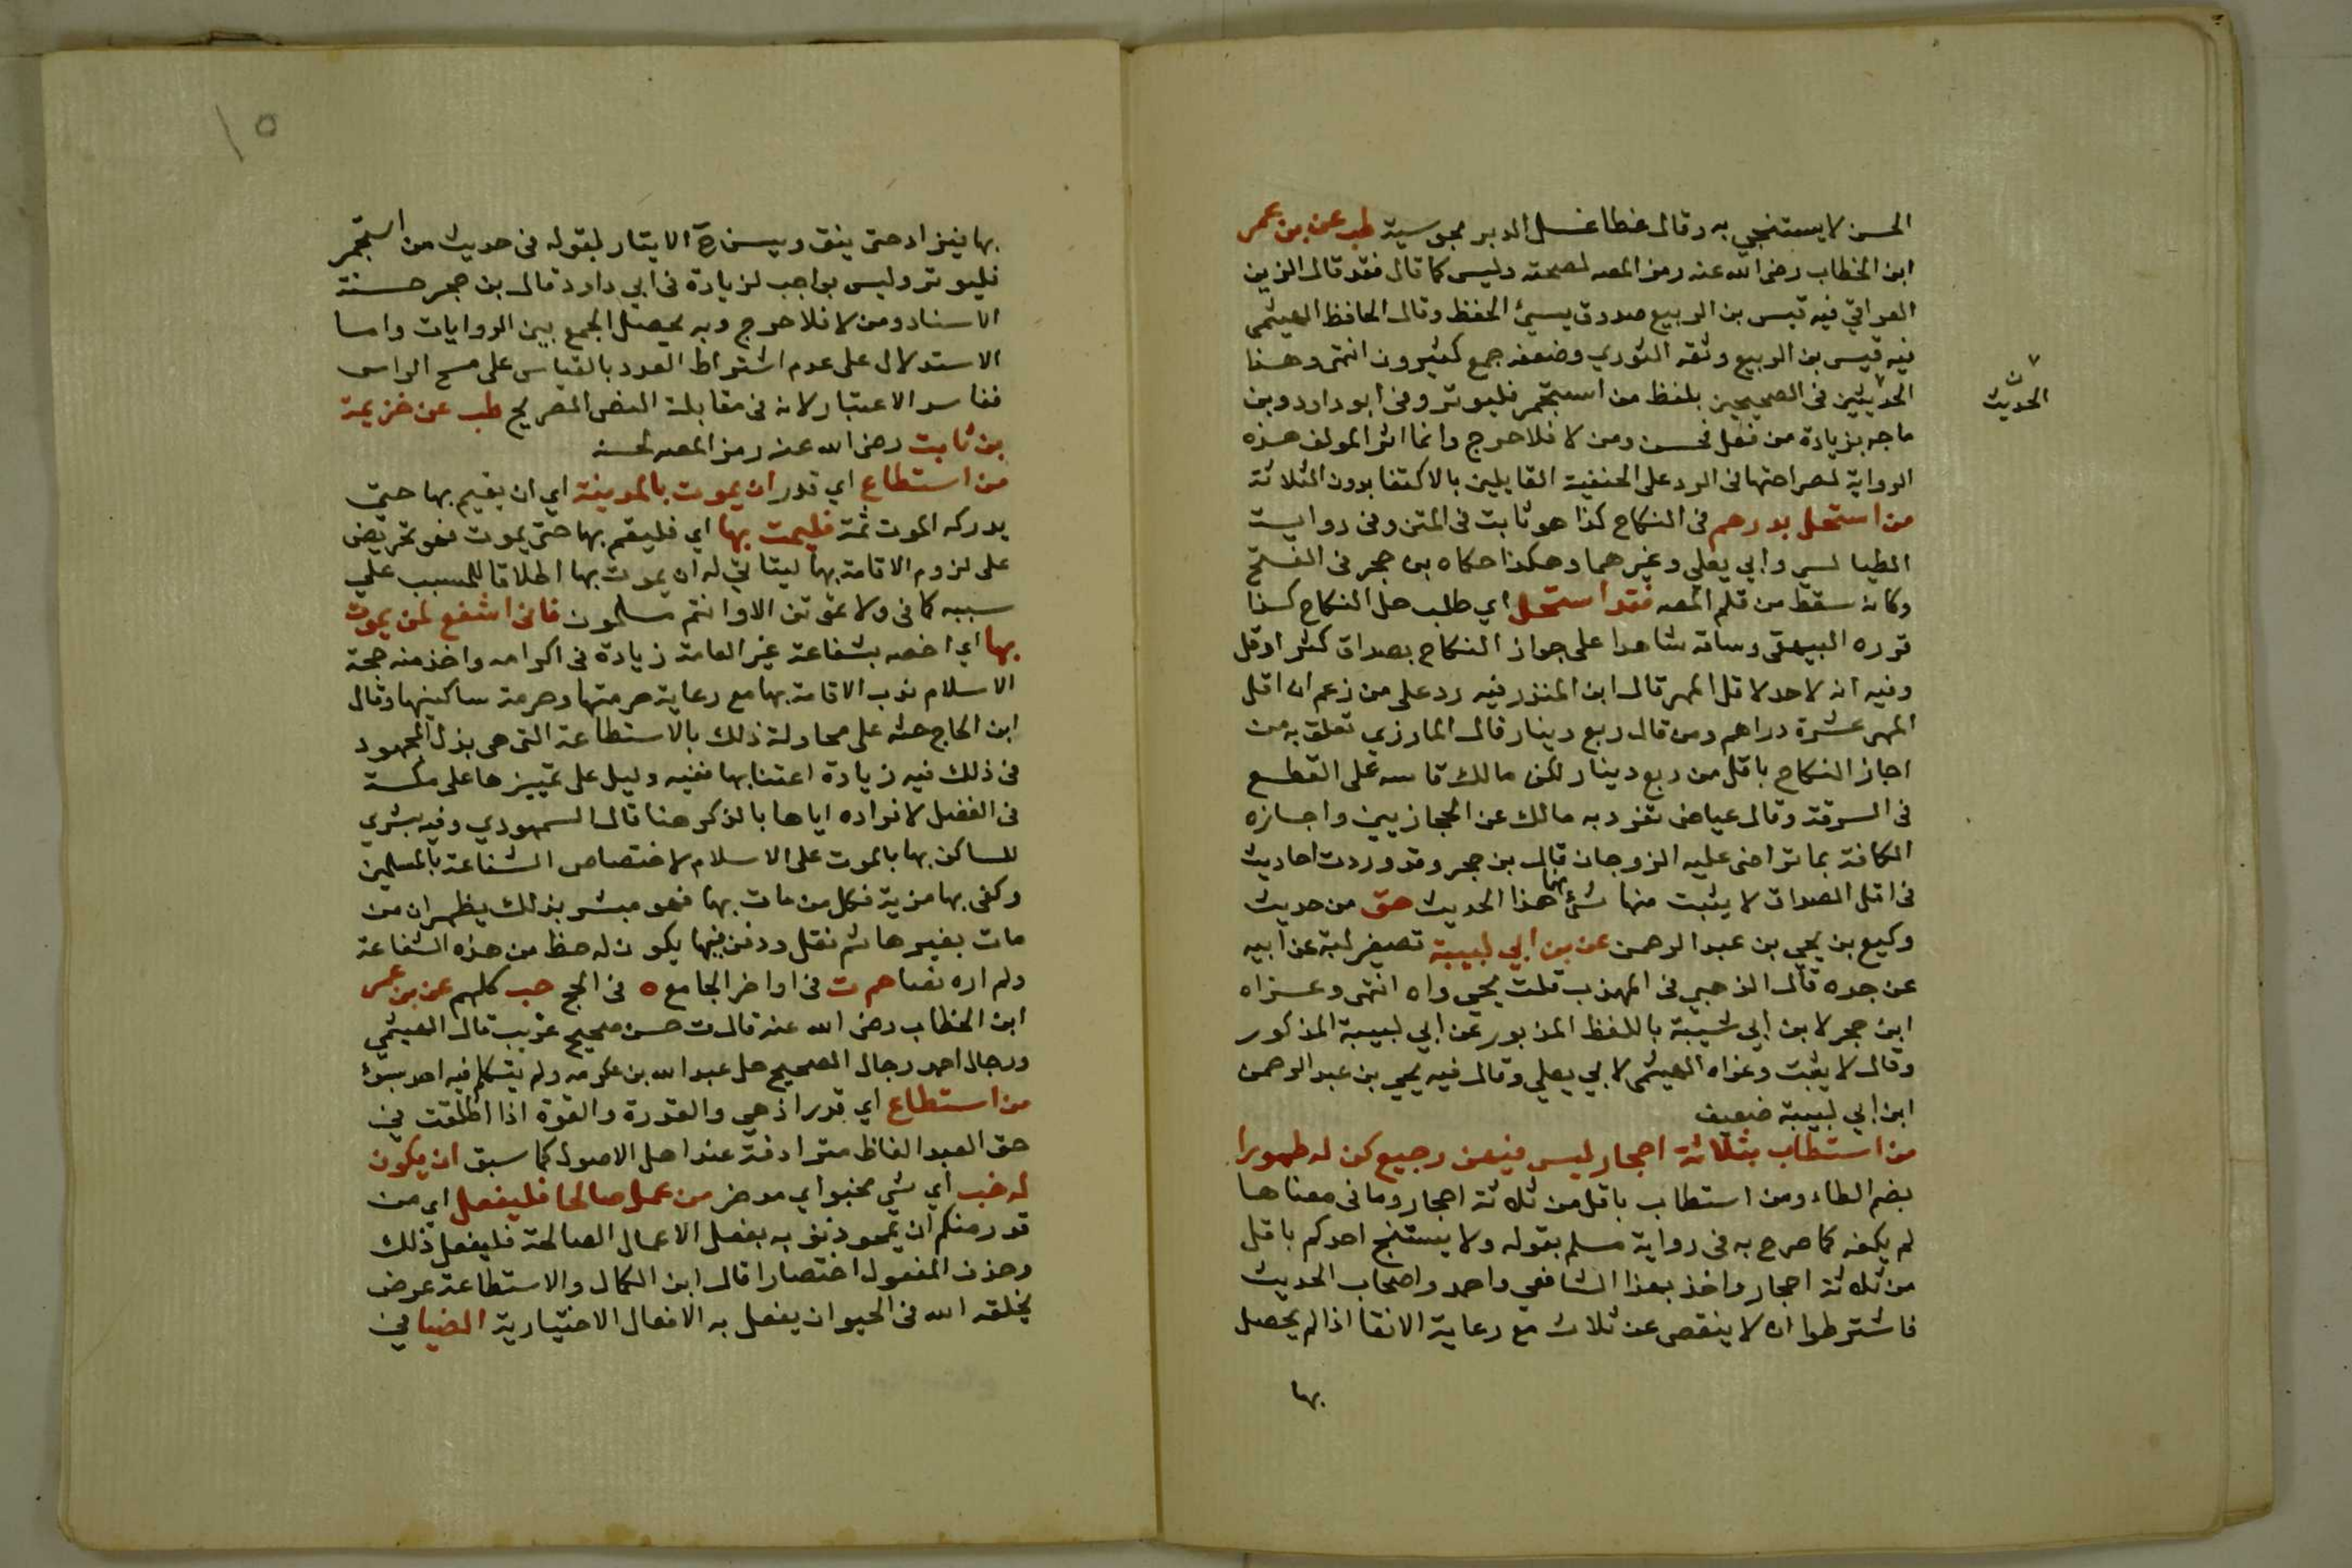 الحسن لا يستنجي به وقال عطا غسل الدبر مجوسية طب عن بن عمر
ابن الخطاب رضى الله عنه رمز المصه لصحته وليس كما قال فقد قال الزين
العراقي فيه قيس بن الربيع صدوق يسيئ الحفظ وقال الحافظ الهيثمى
فيه قيس بن الربيع وثقه الثوري وضعفه جمع كثيرون انتهى وهذا
الحديثين فى الصحيحين بلفظ من استجمر فليوتر وفى ابو داود وبن
الحديث
ماجه بزيادة من فعل فحسن ومن لا فلا حرج وانما اثر المولف هذه
الرواية لصراحتها فى الرد على الحنفية القايلين بالاكتفا بدون الثلاثة
من استحل بدرهم فى النكاح كذا هو ثابت فى المتن وفى رواية
الطيالسي وابي يعلي وغيرهما وهكذا حكاه بن حجر فى الفتح
وكانه سقط من قلم المصه فقد استحل اي طلب حل النكاح كذا
قرره البيهقى وساقه شاهدا على جواز النكاح بصداق كثر اوقل
وفيه انه لا حد لا قل المهر قال ابن المنذر فيه رد على من زعم ان اقل
المهر عشرة دراهم ومن قال ربع دينار قال المازري تعلق به من
اجاز النكاح باقل من ربع دينار لكن مالك قاسه على القطع
فى السرقة وقال عياض تفرد به مالك عن الحجازيين واجازه
الكافة بما تراضى عليه الزوجان قال بن حجر وقد وردت احاديث
فى اقل الصداق لا يثبت منها شئ منها هذا الحديث هق من حديث
وكيع بن يحي بن عبد الرحمن عن بن ابي لبيبة تصغير لبة عن ابيه
عن جده قال الذهبي فى المهذب قلت يحى واه انتهى وعزاه
ابن حجر لابن ابي شيبة باللفظ المذبور عن ابي لبيبة المذكور
وقال لا يثبت وعزاه الهيثمى لابي يعلي وقال فيه يحي بن عبد الرحمن
ابن ابي لبيبة ضعيف
من استطاب بثلاثة احجار ليس فيهن رجيع كن له طهورا
بضم الطاء ومن استطاب باقل من ثلاثة احجار وما فى معناها
لم يكفه كما صرح به فى رواية مسلم بقوله ولا يستنج احدكم باقل
من ثلاثة احجار واخذ بهذا الشافعي واحمد واصحاب الحديث
فاشترطوا ان لا ينقص عن ثلاث مع رعاية الانقا اذا لم يحصل
بها
١٥
بها فيزاد حتى ينق ويسن ح الايتار لقوله فى حديث من استجمر
فليوتر وليس بواجب لزيادة فى ابي داود قال بن حجر حسنة
الاسناد ومن لا فلا حرج وبه يحصل الجمع بين الروايات واما
الاستدلال على عدم اشتراط العدد بالقياس على مسح الراس
ففاسد الاعتبار لانه فى مقابلة النص الصريح طب عن خزيمة
بن ثابت رضى الله عنه رمز المصه لحسنه
من استطاع اي قدر ان يموت بالمدينة اي ان يقيم بها حتى
يدركه الموت ثمة فليمت بها اي فليقم بها حتى يموت فهو تحريض
على لزوم الاقامة بها ليتاتي له ان يموت بها اطلاقا للمسبب علي
سببه كما فى ولا تموتن الا وانتم مسلمون فانى اشفع لمن يموت
بها اي اخصه بشفاعة غير العامة زيادة فى اكرامه واخذ منه حجة
الاسلام ندب الاقامة بها مع رعاية حرمتها وحرمة ساكنيها وقال
ابن الحاج حثه على محاولة ذلك بالاستطاعة التى هى بذل المجهود
فى ذلك فيه زيادة اعتنا بها ففيه دليل على تمييزها على مكة
فى الفضل لافراده اياها بالذكر هنا قال السمهودي وفيه بشري
للساكن بها بالموت على الاسلام لاختصاص الشفاعة بالمسلمين
وكفى بها مزية فكل من مات بها فهو مبشر بذلك يظهر ان من
مات بغيرها ثم نقل ودفن فيها يكون له حظ من هذه الشفاعة
ولم اره نصا حم ت فى اواخر الجامع ه فى الحج حب كلهم عن بن عمر
ابن الخطاب رضى الله عنه قال ت حسن صحيح غريب قال الهيثمي
ورجال احمد رجال الصحيح خلا عبد الله بن عكرمه ولم يتكلم فيه احد بسوء
من استطاع اي قدر اذ هي والقدرة والقوة اذا اطلقت فى
حق العبد الفاظ مترادفة عند اهل الاصول كما سبق ان يكون
له خب اي شي مخبو اي مدخر من عمل صالحا فليفعل اي من
قدر منكم ان يمحو ذنوبه بفعل الاعمال الصالحة فليفعل ذلك
وحذف المفعول اختصارا قال ابن الكمال والاستطاعة عرض
يخلقه الله فى الحيوان يفعل به الافعال الاختيارية الضيا فى